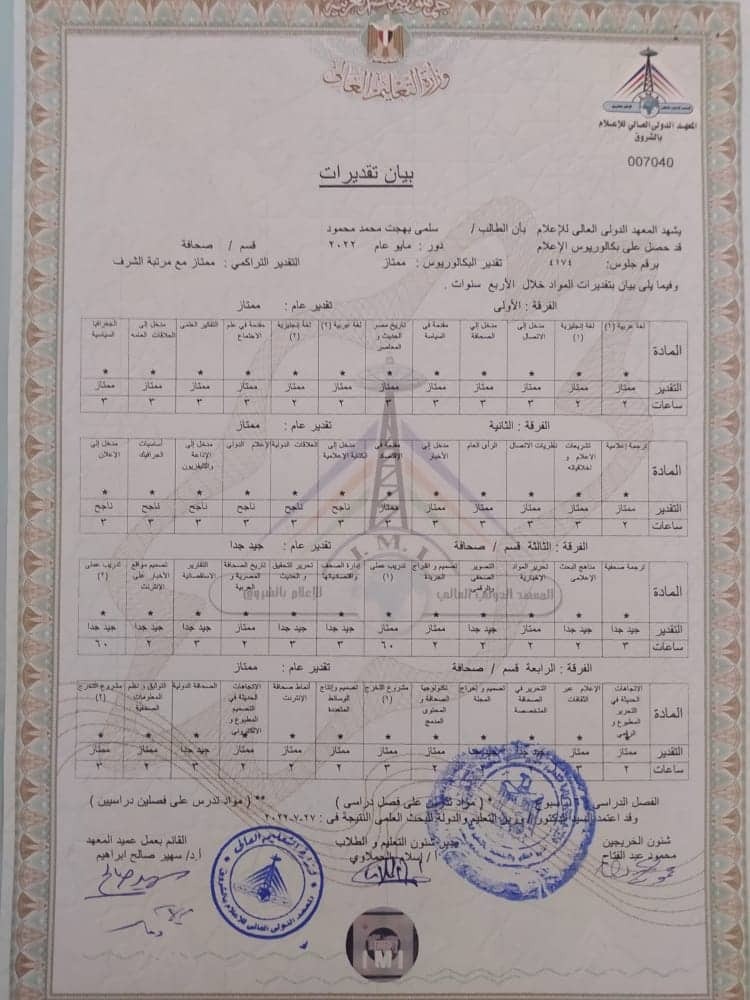 وزارة التعليم العالى
المعهد الدولى العالى للإعلام
بالشروق
007040
بيان تقديرات
يشهد المعهد الدولى العالى للإعلام بأن الطالب / سلمى بهجت محمد محمود
قد حصل على بكالوريوس الإعلام دور : مايو عام ٢٠٢٢ قسم / صحافة
برقم جلوس: ٤١٧٤ تقدير البكالوريوس : ممتاز التقدير التراكمي : ممتاز مع مرتبة الشرف
وفيما يلى بيان بتقديرات المواد خلال الأربع سنوات .
الفرقة : الأولى تقدير عام : ممتاز
المادة لغة عربية (١) لغة إنجليزية (١) مدخل إلى الاتصال مدخل إلى الصحافة مقدمة فى السياسة تاريخ مصر الحديث و المعاصر لغة عربية (٢) لغة إنجليزية (٢) مقدمة في علم الاجتماع التفكير العلمى مدخل إلى العلاقات العامه الجغرافيا السياسية
* * * * * * * * * * * *
التقدير ممتاز ممتاز ممتاز ممتاز ممتاز ممتاز ممتاز ممتاز ممتاز ممتاز ممتاز ممتاز
ساعات ٢ ٢ ٣ ٣ ٣ ٣ ٢ ٢ ٣ ٣ ٣ ٣
الفرقة : الثانية تقدير عام : ممتاز
المادة ترجمة إعلامية تشريعات الاعلام و اخلاقياته نظريات الاتصال الرأى العام مدخل إلى الأخبار مقدمة فى الاقتصاد مدخل إلى الكتابة الإعلامية العلاقات الدولية الإعلام الدولى مدخل إلى الإذاعة والتليفزيون أساسيات الجرافيك مدخل إلى الإعلان
* * * * * * * * * * * *
التقدير ممتاز ممتاز ممتاز ممتاز ممتاز ممتاز ناجح ناجح ناجح ناجح ناجح ناجح
ساعات ٢ ٣ ٣ ٣ ٣ ٣ ٣ ٣ ٣ ٣ ٣ ٣
الفرقة : الثالثة قسم / صحافة تقدير عام : جيد جدا
المادة ترجمة صحفية مناهج البحث الإعلامى تحرير المواد الإخبارية التصوير الصحفى والرقمى تصميم و إخراج الجريدة تدريب عملى (١) إدارة الصحف واقتصادياتها تحرير التحقيق و الحديث تاريخ الصحافة المصرية و العربية التقارير الاستقصائية تصميم مواقع الأخبار على الإنترنت تدريب عملى (٢)
التقدير جيد جدا جيد جدا ممتاز جيد جدا ممتاز ممتاز جيد جدا جيد جدا ممتاز جيد جدا جيد جدا جيد جدا
الفرقة : الرابعة قسم / صحافة تقدير عام : ممتاز
المادة الاتجاهات الحديثة في التحرير المطبوع و الرقمي الإعلام عبر الثقافات التحرير في الصحافة المتخصصة تصميم و إخراج المجلة تكنولوجيا الصحافة و المحتوى المدمج مشروع التخرج (١) تصميم وإنتاج الوسائط المتعددة أنماط صحافة الإنترنت الإتجاهات الحديثة في التصميم المطبوع و الالكتروني الصحافة الدولية التوثيق و نظم المعلومات الصحفية مشروع التخرج (٢)
التقدير ممتاز ممتاز جيد جدا
الفصل الدراسى ١٥ أسبوع * ( مواد تدرس على فصل دراسى ) ** ( مواد تدرس على فصلين دراسيين )
وقد اعتمد السيد الدكتور / وزير التعليم والدولة للبحث العلمى النتيجة فى : ٢٠٢٢.٧.٢٧
شئون الخريجين مدير شئون التعليم و الطلاب القائم بعمل عميد المعهد
محمود عبد الفتاح أ / إسلام الجملاوي أ.د/ سهير صالح ابراهيم